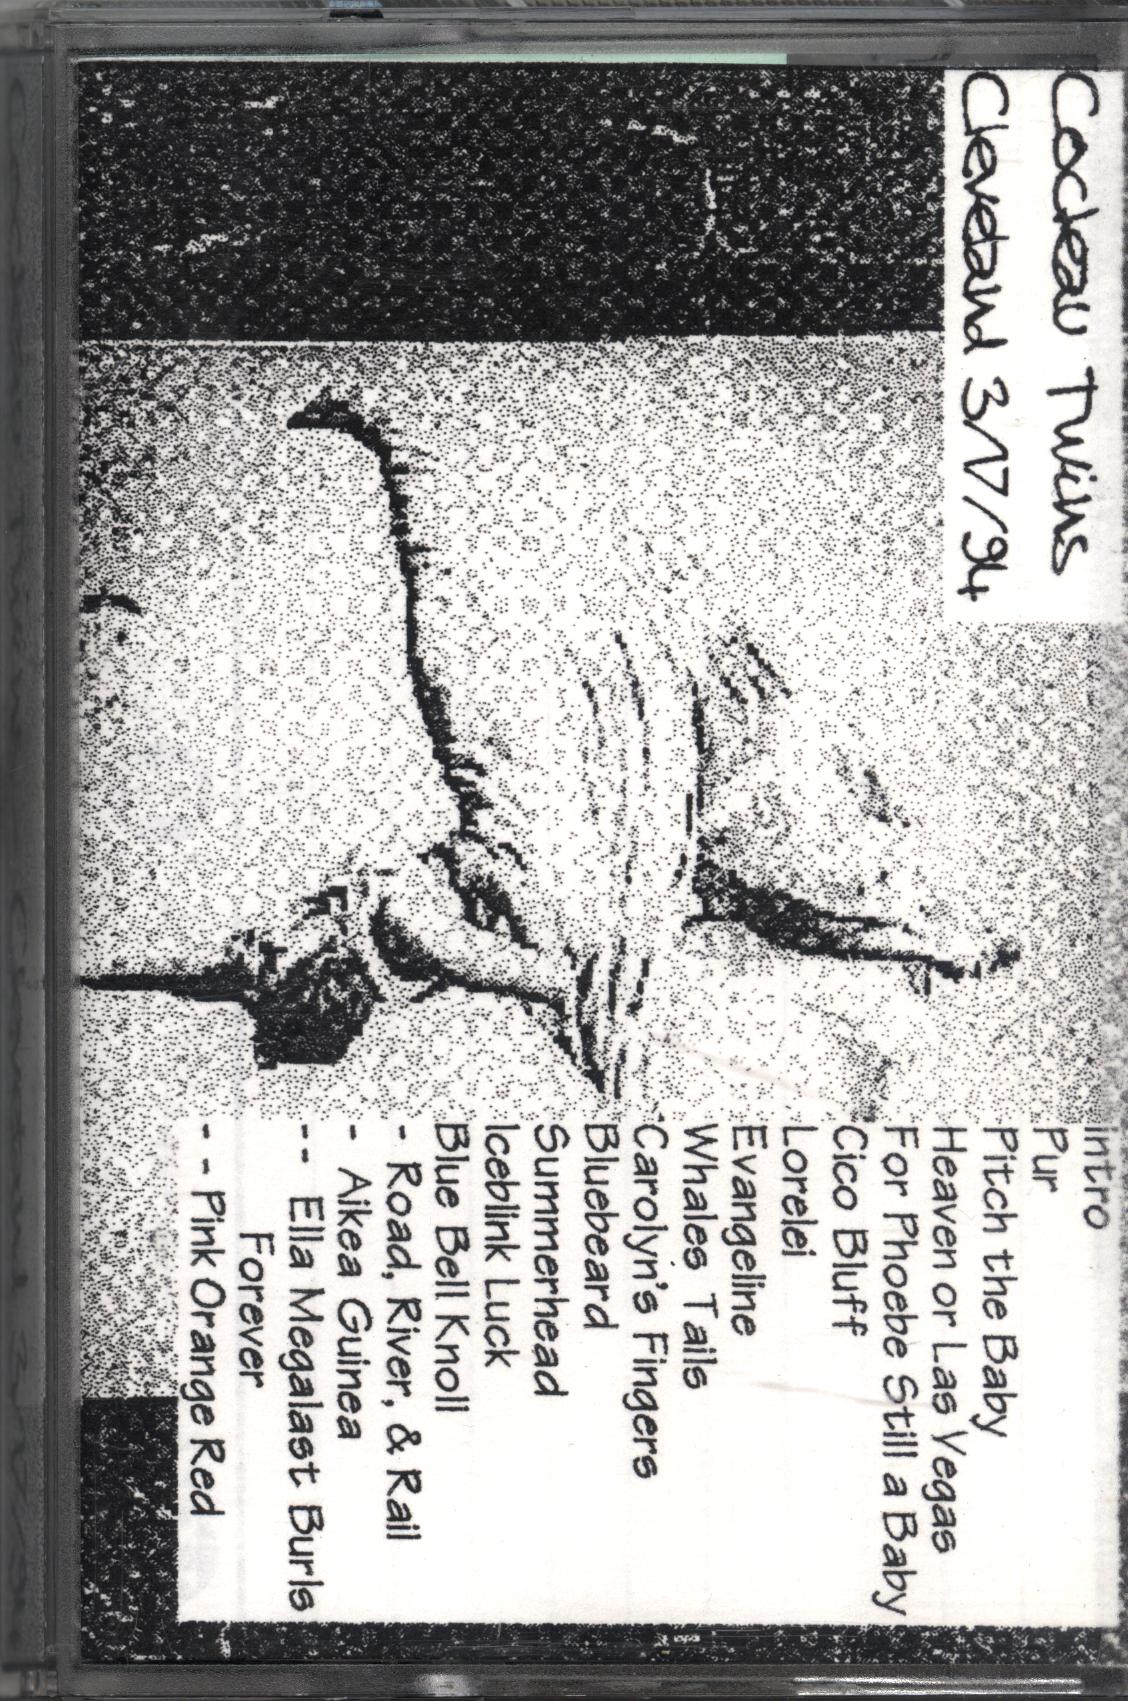 Cocteau Twins
Cleveland 3/17/94
Intro
Pur
Pitch the Baby
Heaven or Las Vegas
For Phoebe Still a Baby
Cico Bluff
Lorelei
Evangeline
Whales Tails
Carolyn's Fingers
Bluebeard
Summerhead
Iceblink Luck
Blue Bell Knoll
- Road, River, & Rail
- Aikea Guinea
-- Ella Megalast Burls
Forever
-- Pink Orange Red